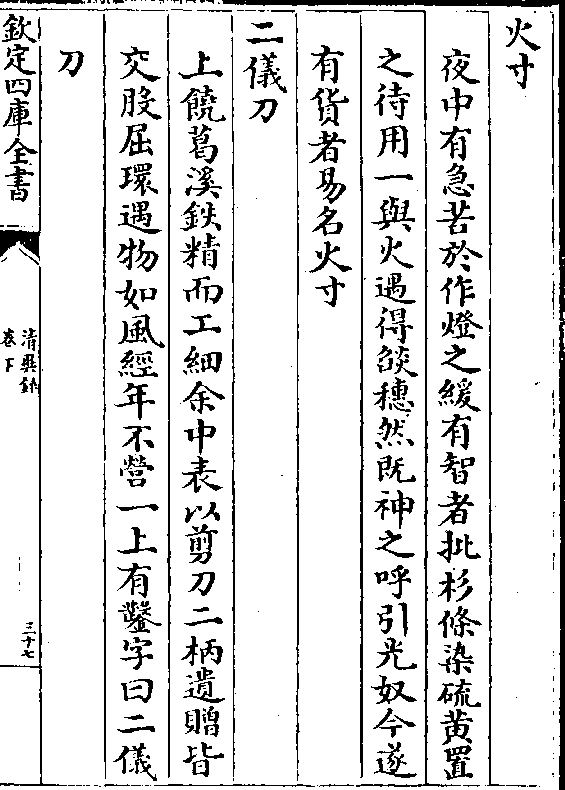 火寸
夜中有急苦於作燈之緩有智者批杉條染硫黃置
之待用一與火遇得𦦨穗然既神之呼引光奴今遂
有貨者易名火寸
二儀刀
上饒葛溪鉄精而工細余中表以剪刀二柄遺贈皆
交股屈環遇物如風經年不營一上有鑿字曰二儀
刀
欽定四庫全書
清異錄
卷下
三十七